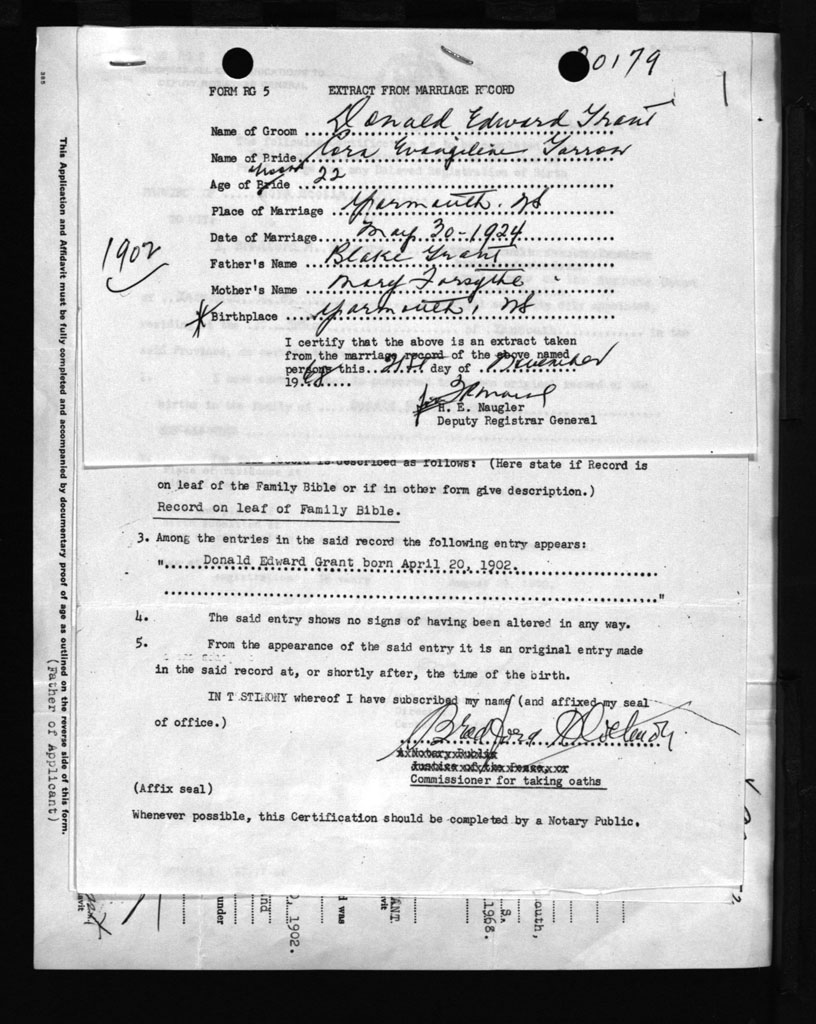 30179
FORM RG 5 EXTRACT FROM MARRIAGE RECORD
Name of Groom Donald Edward Grant
Name of Bride Cora Evangeline
Groom
Age of Bride 22
Place of Marriage Yarmouth, NS
Date of Marriage May 30-1924
1902
Father's Name Blake Grant
Mother's Name Mary Forsythe
Birthplace Yarmouth, NS
I certify that the above is an extract taken
from the marriage record of the above named
persons this 21st day of November
1968
H. E. Naugler
Deputy Registrar General
record is described as follows: (Here state if Record is
on leaf of the Family Bible or if in other form give description.)
Record on leaf of Family Bible.
3. Among the entries in the said record the following entry appears:
"......Donald Edward Grant born April 20, 1902.
"
4. The said entry shows no signs of having been altered in any way.
5. From the appearance of the said entry it is an original entry made
in the said record at, or shortly after, the time of the birth.
IN T STIMONY whereof I have subscribed my name (and affixed my seal
of office.)
A Notary Public
Justice of the Peace, or
Commissioner for taking oaths
(Affix seal)
Whenever possible, this Certification should be completed by a Notary Public.
This Application and Affidavit must be fully completed and accompanied by documentary proof of age as outlined on the reverse side of this form.
(Father of Applicant)
under
1902.
i was
ANT.
S.
1968.
outh,